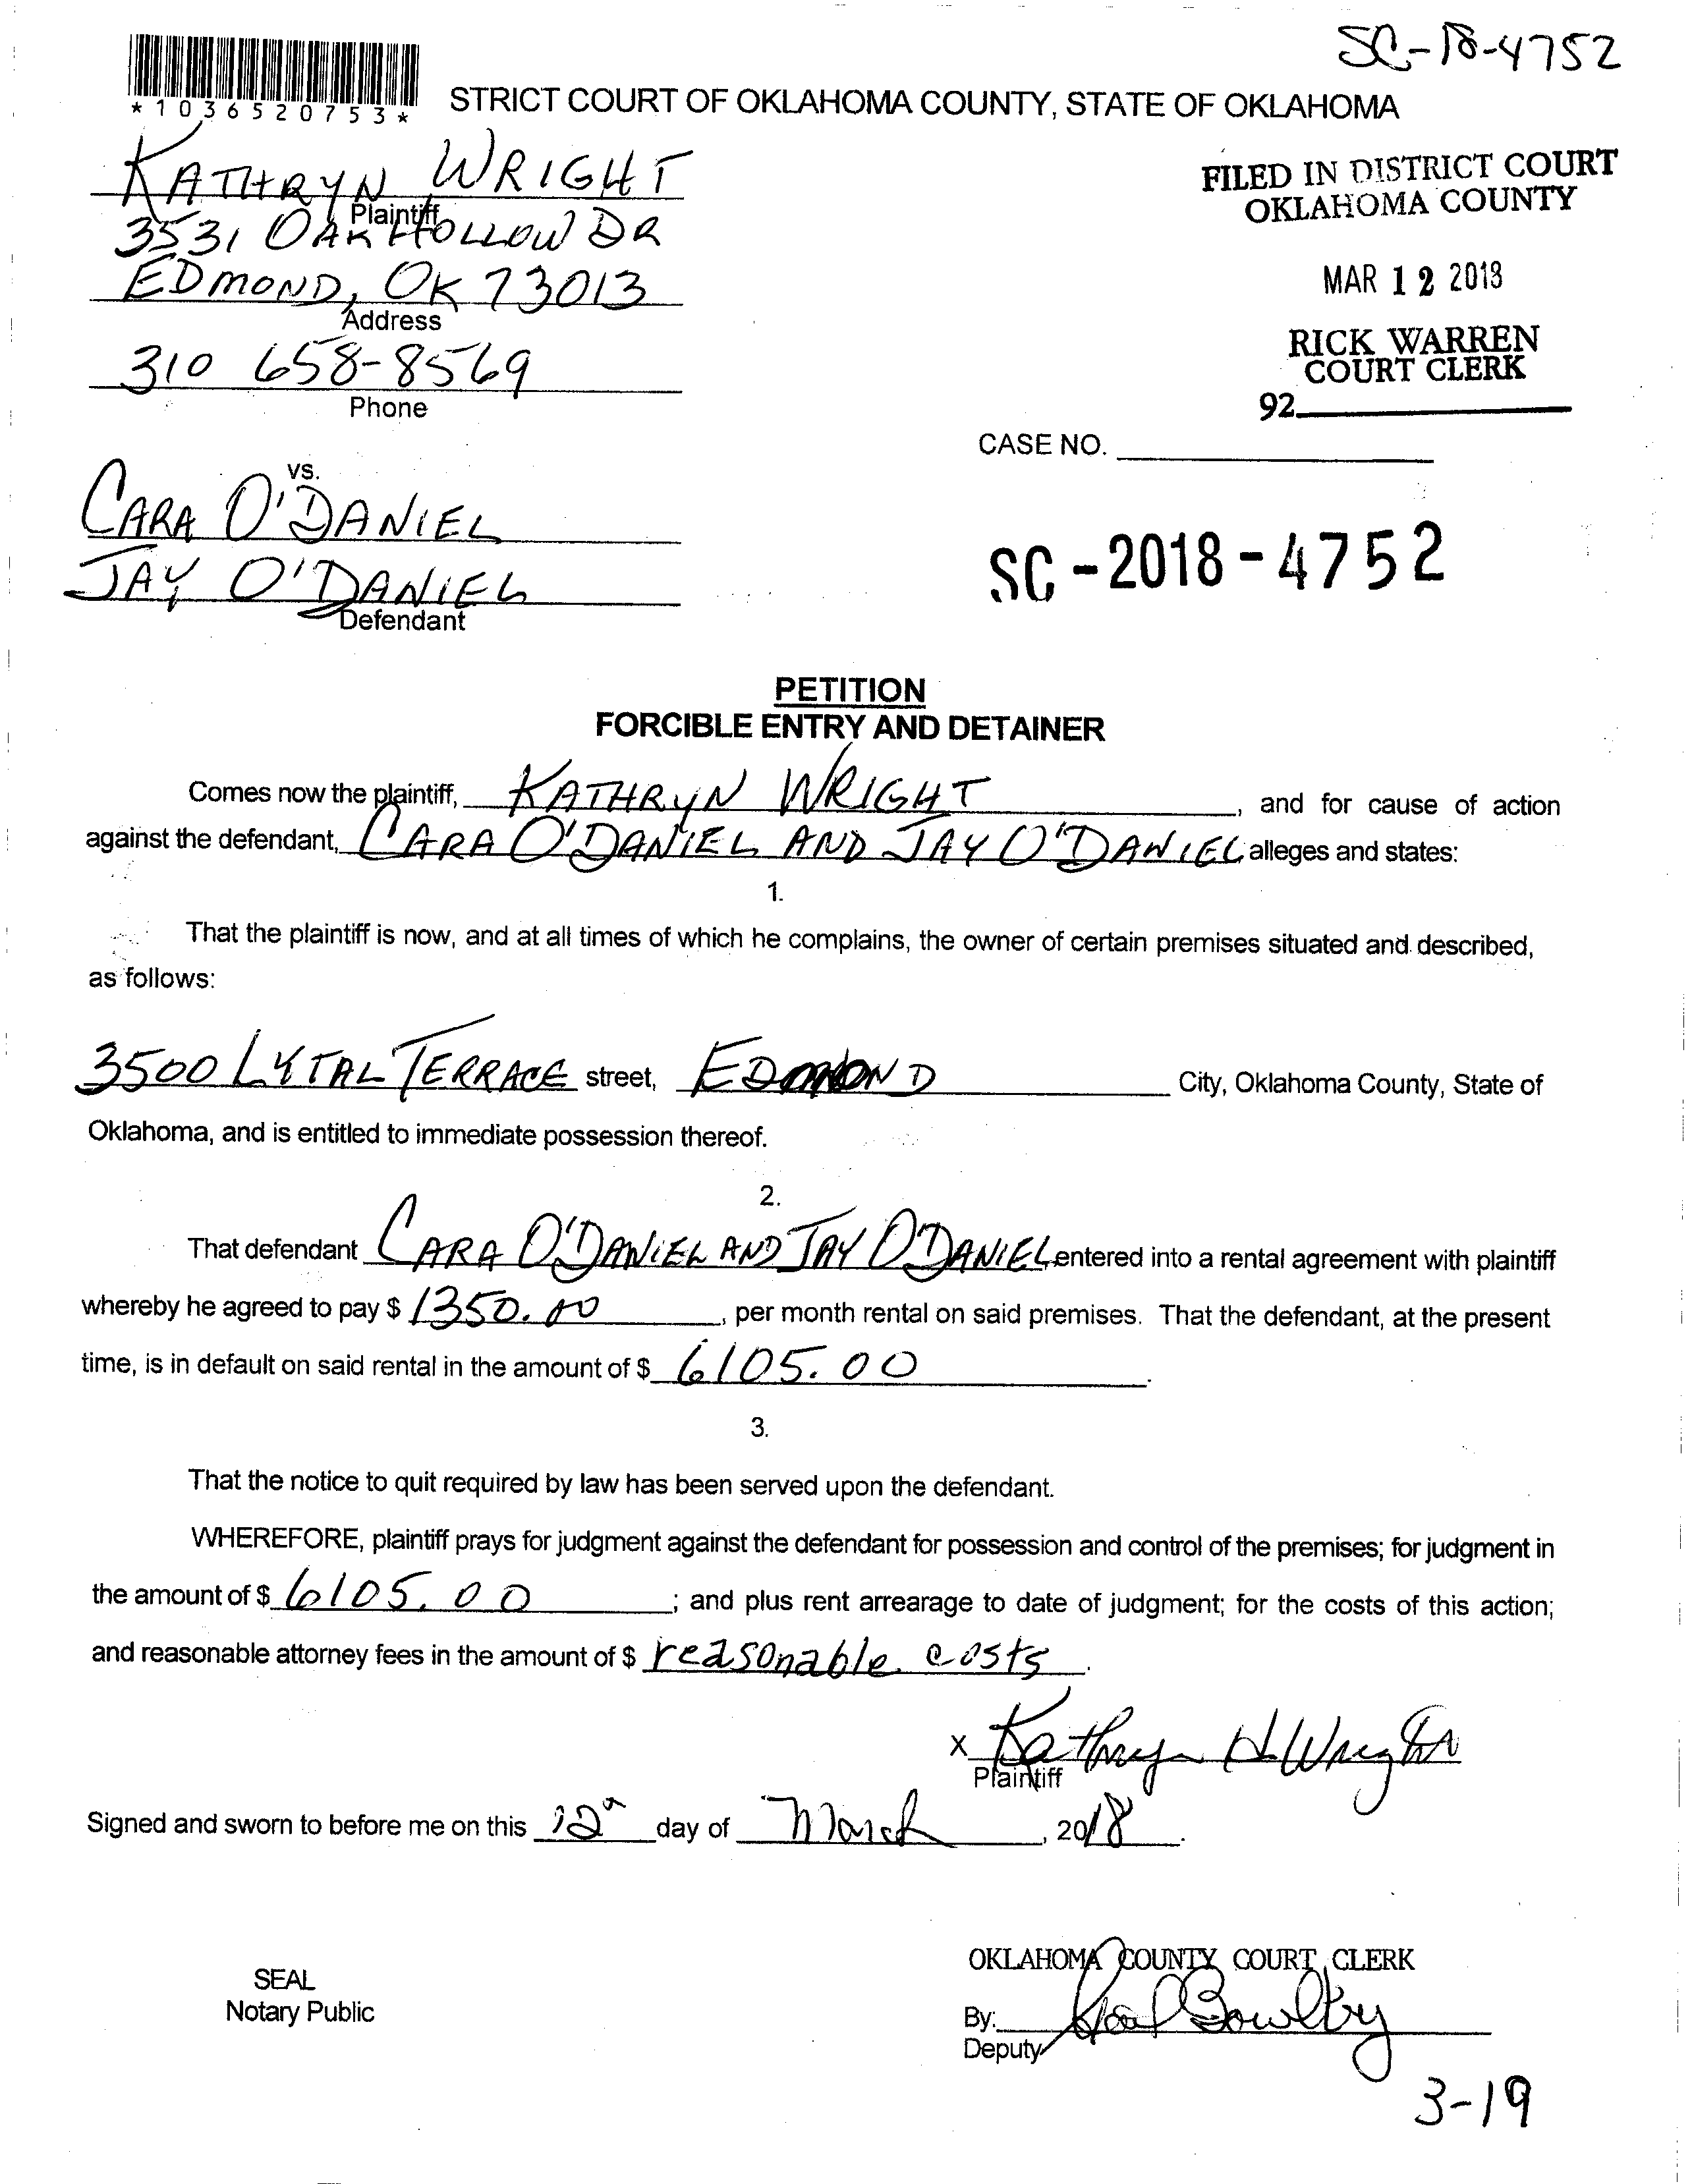 SC-18-4752
*1036520753*
STRICT COURT OF OKLAHOMA COUNTY, STATE OF OKLAHOMA
KATHRYN WRIGHT
Plaintiff
3531 OAK HOLLOW DR
EDMOND, OK 73013
Address
310 658-8569
Phone
FILED IN DISTRICT COURT
OKLAHOMA COUNTY
MAR 12 2018
RICK WARREN
COURT CLERK
92
CASE NO.
vs.
CARA O'DANIEL
JAY O'DANIEL
Defendant
SC-2018-4752
PETITION
FORCIBLE ENTRY AND DETAINER
Comes now the plaintiff, KATHRYN WRIGHT, and for cause of action
against the defendant, CARA O'DANIEL AND JAY O'DANIEL alleges and states:
1.
That the plaintiff is now, and at all times of which he complains, the owner of certain premises situated and described,
as follows:
3500 LYTAL TERRACE street, EDMOND City, Oklahoma County, State of
Oklahoma, and is entitled to immediate possession thereof.
2.
That defendant CARA O'DANIEL AND JAY O'DANIEL entered into a rental agreement with plaintiff
whereby he agreed to pay $ 1350.00, per month rental on said premises. That the defendant, at the present
time, is in default on said rental in the amount of $ 6105.00.
3.
That the notice to quit required by law has been served upon the defendant.
WHEREFORE, plaintiff prays for judgment against the defendant for possession and control of the premises; for judgment in
the amount of $ 6105.00; and plus rent arrearage to date of judgment; for the costs of this action;
and reasonable attorney fees in the amount of $ reasonable costs.
X Kathryn H Wright
Plaintiff
Signed and sworn to before me on this 12th day of March, 2018.
SEAL
Notary Public
OKLAHOMA COUNTY COURT CLERK
By:
Deputy
3-19